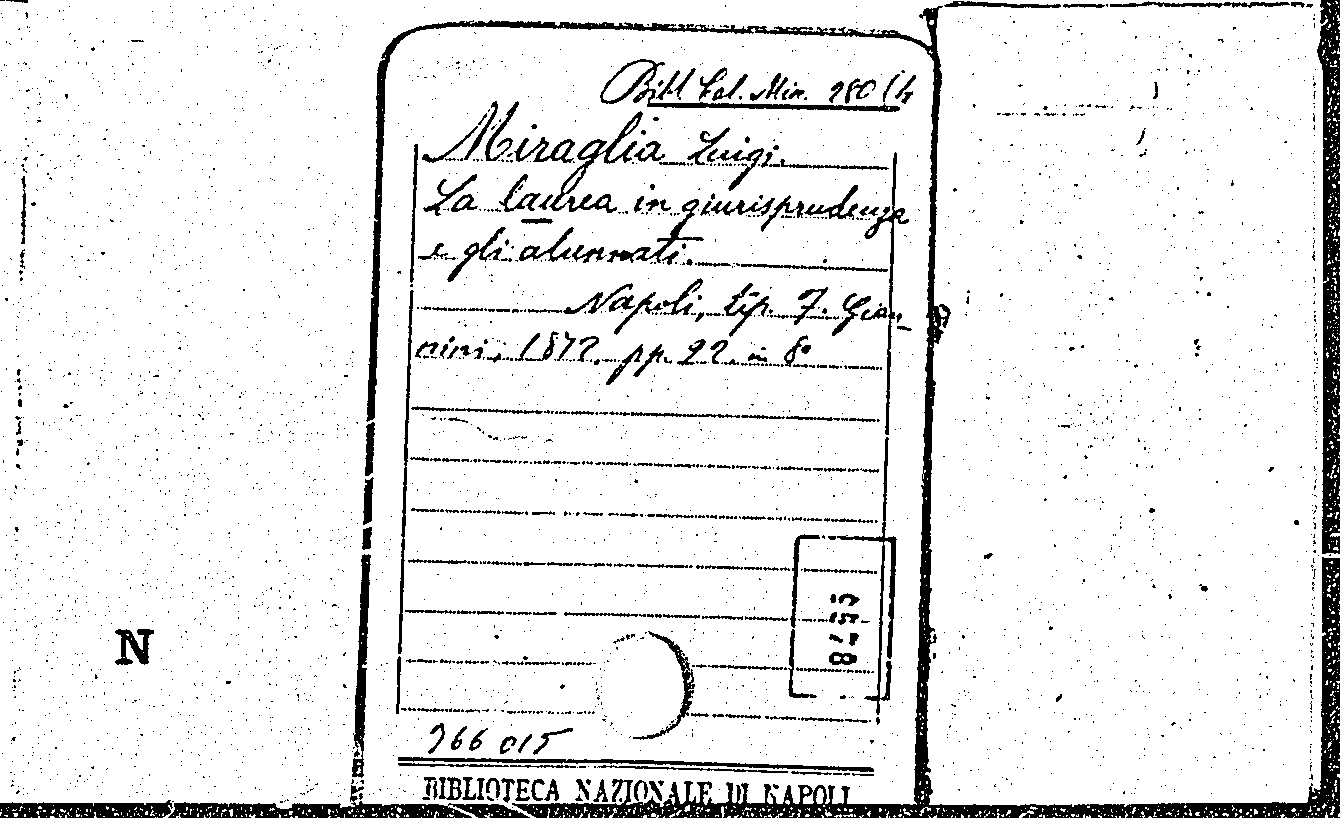 Bibl Col. Min. 280 (4
Miraglia Luigi.
La laurea in giurisprudenza
e gli alunnati.
Napoli, tip. F. Gian-
nini, 1872, pp. 22. in 8°
N
966 015
BIBLIOTECA NAZIONALE DI NAPOLI